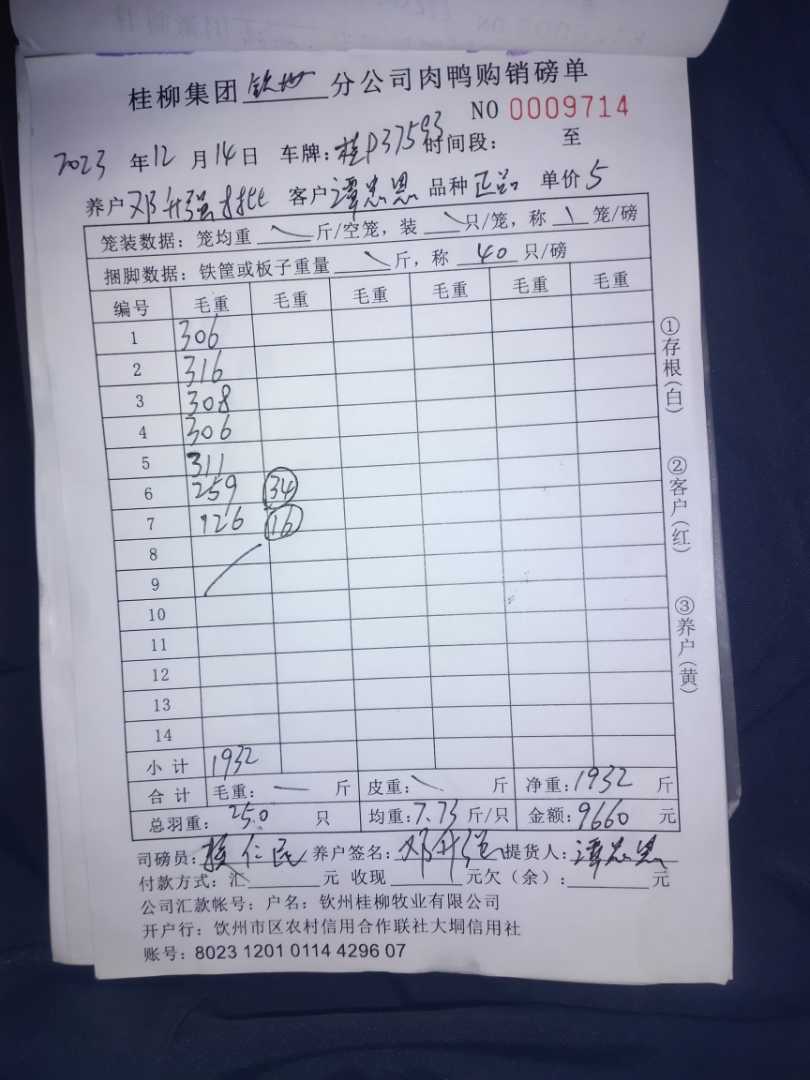 桂柳集团 钦州 分公司肉鸭购销磅单
NO 0009714
2023 年 12 月 14 日 车牌: 桂P37593 时间段: 至
养户 邓升强 客户 谭忠恩 品种 正品 单价 5
笼装数据: 笼均重 \ 斤/空笼, 装 \ 只/笼, 称 \ 笼/磅
捆脚数据: 铁筐或板子重量 \ 斤, 称 40 只/磅
编号 毛重 毛重 毛重 毛重 毛重 毛重
1 306
2 316
3 308
4 306
5 311
6 259 34
7 126 16
8
9
10
11
12
13
14
小计 1932
合计 毛重: — 斤 皮重: \ 斤 净重: 1932 斤
总羽重: 250 只 均重: 7.73 斤/只 金额: 9660 元
司磅员: 仁民 养户签名: 邓升强 提货人: 谭忠恩
付款方式: 汇 元 收现 元欠(余): 元
公司汇款帐号: 户名: 钦州桂柳牧业有限公司
开户行: 钦州市区农村信用合作联社大垌信用社
账号: 8023 1201 0114 4296 07
①存根(白)
②客户(红)
③养户(黄)